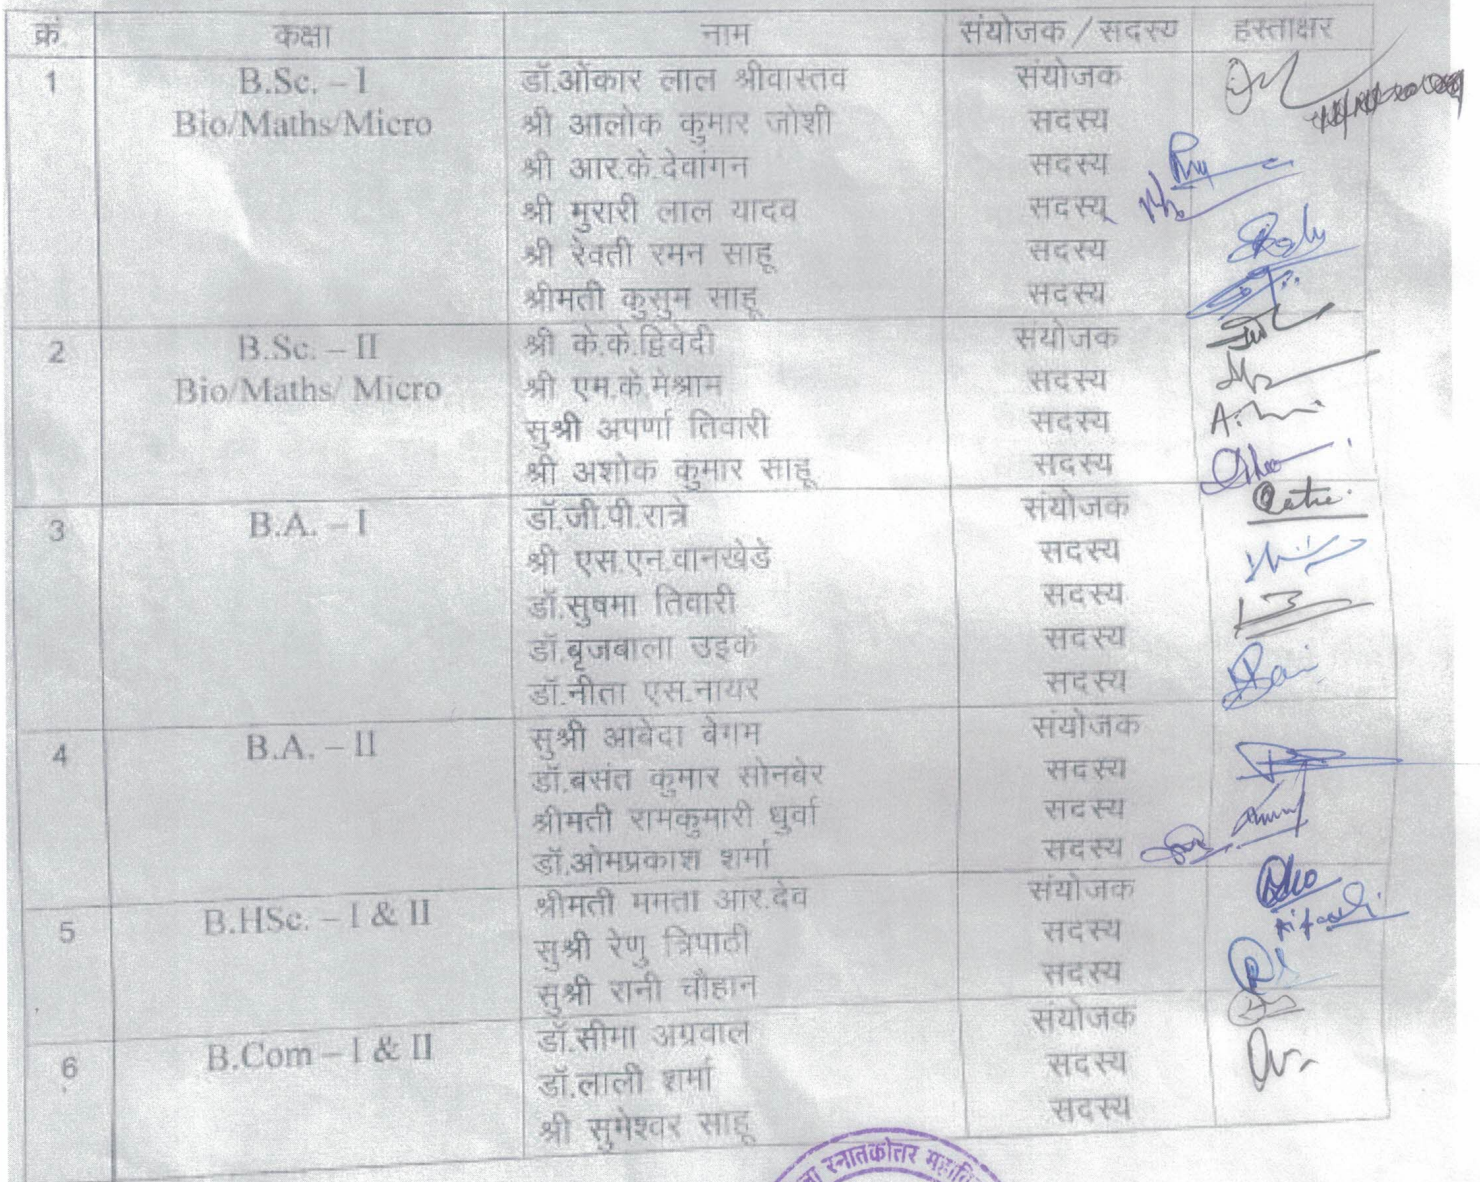 क्रं कक्षा नाम संयोजक / सदस्य हस्ताक्षर
1 B.Sc. – I डॉ.ओंकार लाल श्रीवास्तव संयोजक
Bio/Maths/Micro श्री आलोक कुमार जोशी सदस्य
श्री आर.के.देवांगन सदस्य
श्री मुरारी लाल यादव सदस्य
श्री रेवती रमन साहू सदस्य
श्रीमती कुसुम साहू सदस्य
2 B.Sc. – II श्री के.के.द्विवेदी संयोजक
Bio/Maths/ Micro श्री एम.के.मेश्राम सदस्य
सुश्री अपर्णा तिवारी सदस्य
श्री अशोक कुमार साहू सदस्य
3 B.A. – I डॉ.जी.पी.रात्रे संयोजक
श्री एस.एन.वानखेडे सदस्य
डॉ.सुषमा तिवारी सदस्य
डॉ.बृजबाला उइके सदस्य
डॉ.नीता एस.नायर सदस्य
4 B.A. – II सुश्री आबेदा बेगम संयोजक
डॉ.बसंत कुमार सोनबेर सदस्य
श्रीमती रामकुमारी धुर्वा सदस्य
डॉ.ओमप्रकाश शर्मा सदस्य
5 B.HSc. – I & II श्रीमती ममता आर.देव संयोजक
सुश्री रेणु त्रिपाठी सदस्य
सुश्री रानी चौहान सदस्य
6 B.Com – I & II डॉ.सीमा अग्रवाल संयोजक
डॉ.लाली शर्मा सदस्य
श्री सुमेश्वर साहू सदस्य
स्नातकोत्तर